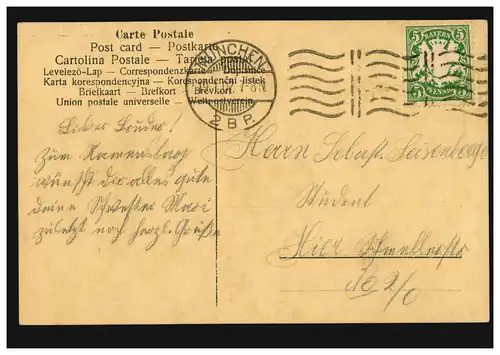 Carte Postale
Post card — Postkarte
Cartolina Postale — Tarjeta postal
Levelező-Lap — Correspondenzkarte — Dopisnice
Karta korespondencyjna — Korespondenční lístek
Briefkaart — Brefkort — Brevkort
Union postale universelle — Weltpostverein
MÜNCHEN
7-8 N.
2 B.P.
5 BAYERN 5
Lieber Bruder!
Zum Namenstag
wünscht dir alles gute
deine Schwester Mari
zuletzt noch herzl. Grüße
Herrn Sebast. Seisenberger
Student
Hier Schnellerstr.
No 2/0